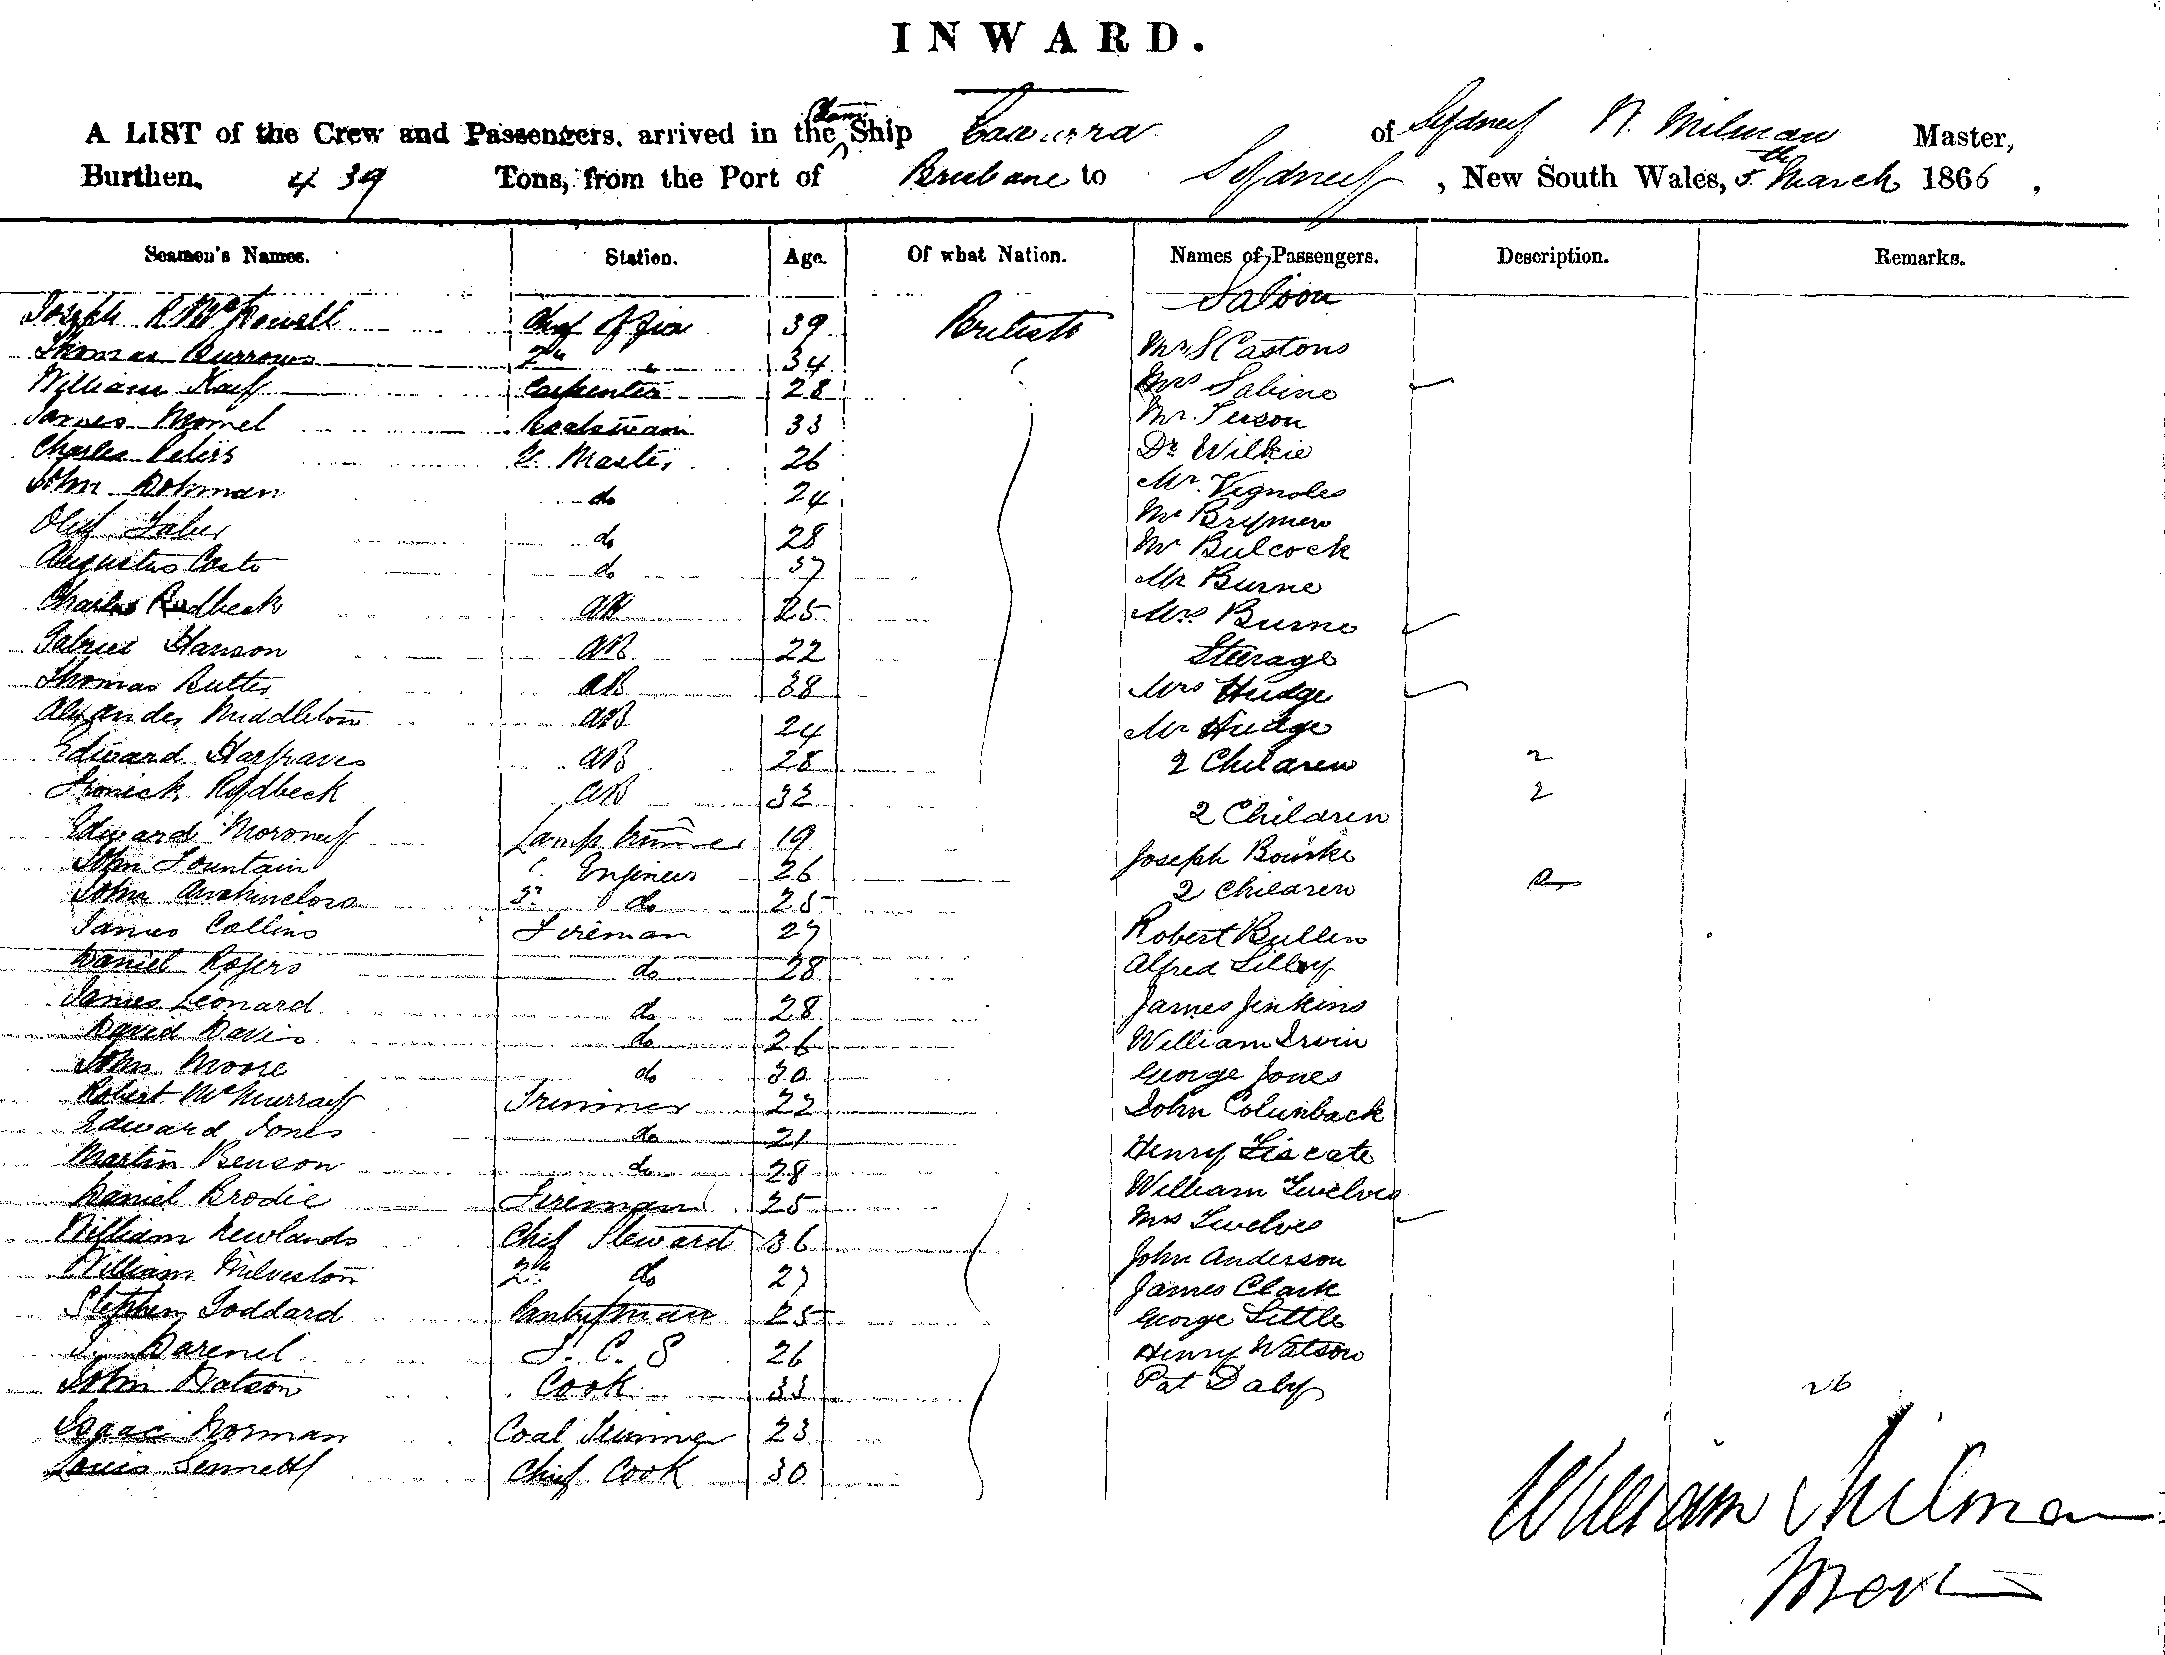 INWARD.
A LIST of the Crew and Passengers, arrived in the Steam Ship of Sydney W. Milman Master,
Burthen, 439 Tons, from the Port of Brisbane to Sydney, New South Wales, 5th March 1866.
Seamen's Names. Station. Age. Of what Nation. Names of Passengers. Description. Remarks.
Saloon
Joseph R 39 British
Thomas Burrows 2nd " 34 Castons
William Carpenter 28 Mrs Sabine
James Boatswain 33 Mr.
Charles Peters Q. Master 26 Dr Wilkie
John do 24 Mr. Vignoles
Oluf do 28 Mr
Augustus do 37 Mr Bulcock
Charles Rudbeck AB 25 Mr Burne
Gabriel Hanson AB 22 Mrs Burne
Steerage
Thomas Butter AB 38 Mrs Hudge
Alexander Middleton AB 24 Mr Hudge
Edward Hargraves AB 28 2 Children 2
Rydbeck AB 32 2 Children 2
Edward Moroney Lamp Trimmer 19 Joseph Bourke
John Fountain Engineer 26 2 Children
John do 25
James Collins Fireman 27 Robert Bullen
Daniel Rogers do 28 Alfred Lilley
James Leonard do 28 James Jenkins
David Davis do 26 William Irvin
John Moore do 30 George Jones
Robert McMurray Trimmer 22 John Colunback
Edward Jones do 21 Henry
Martin Benson do 28 William Twelves
Daniel Brodie Fireman 25 Mrs Twelves
William Newlands Chief Steward 36 John Anderson
William do 27 James Clark
Stephen Goddard Pantryman 25 George Little
26 Henry Watson
John Watson Cook 33 Pat Daly 26
Isaac Norman Coal Trimmer 23
Louis Chief Cook 30
William Milman
Master